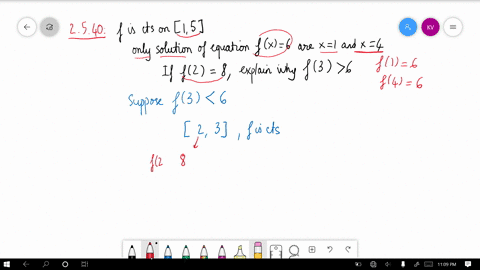 2.5.40. f is cts on [1,5]
only solution of equation f(x)=6 are x=1 and x=4
If f(2) = 8, explain why f(3) > 6
f(1) = 6
f(4) = 6
Suppose f(3) < 6
[2, 3], f is cts
f(2 8
KV
11:09 PM